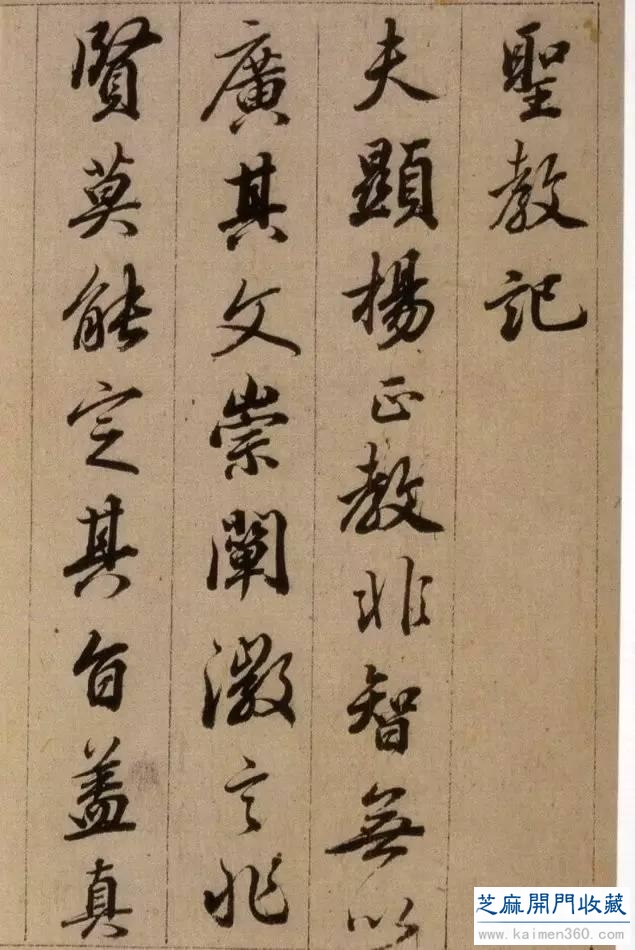 聖教記
夫顯揚正教非智無以
廣其文崇闡微言非
賢莫能定其旨蓋真
芝麻開門收藏
www.kaimen360.com